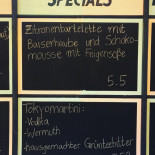 SPECIALS
Zitronentartelette mit
Baiserhaube und Schoko-
mousse mit Feigensoße
5.5
Tokyomartini:
-Wodka
-Wermuth
-hausgemachter Grünteebitter